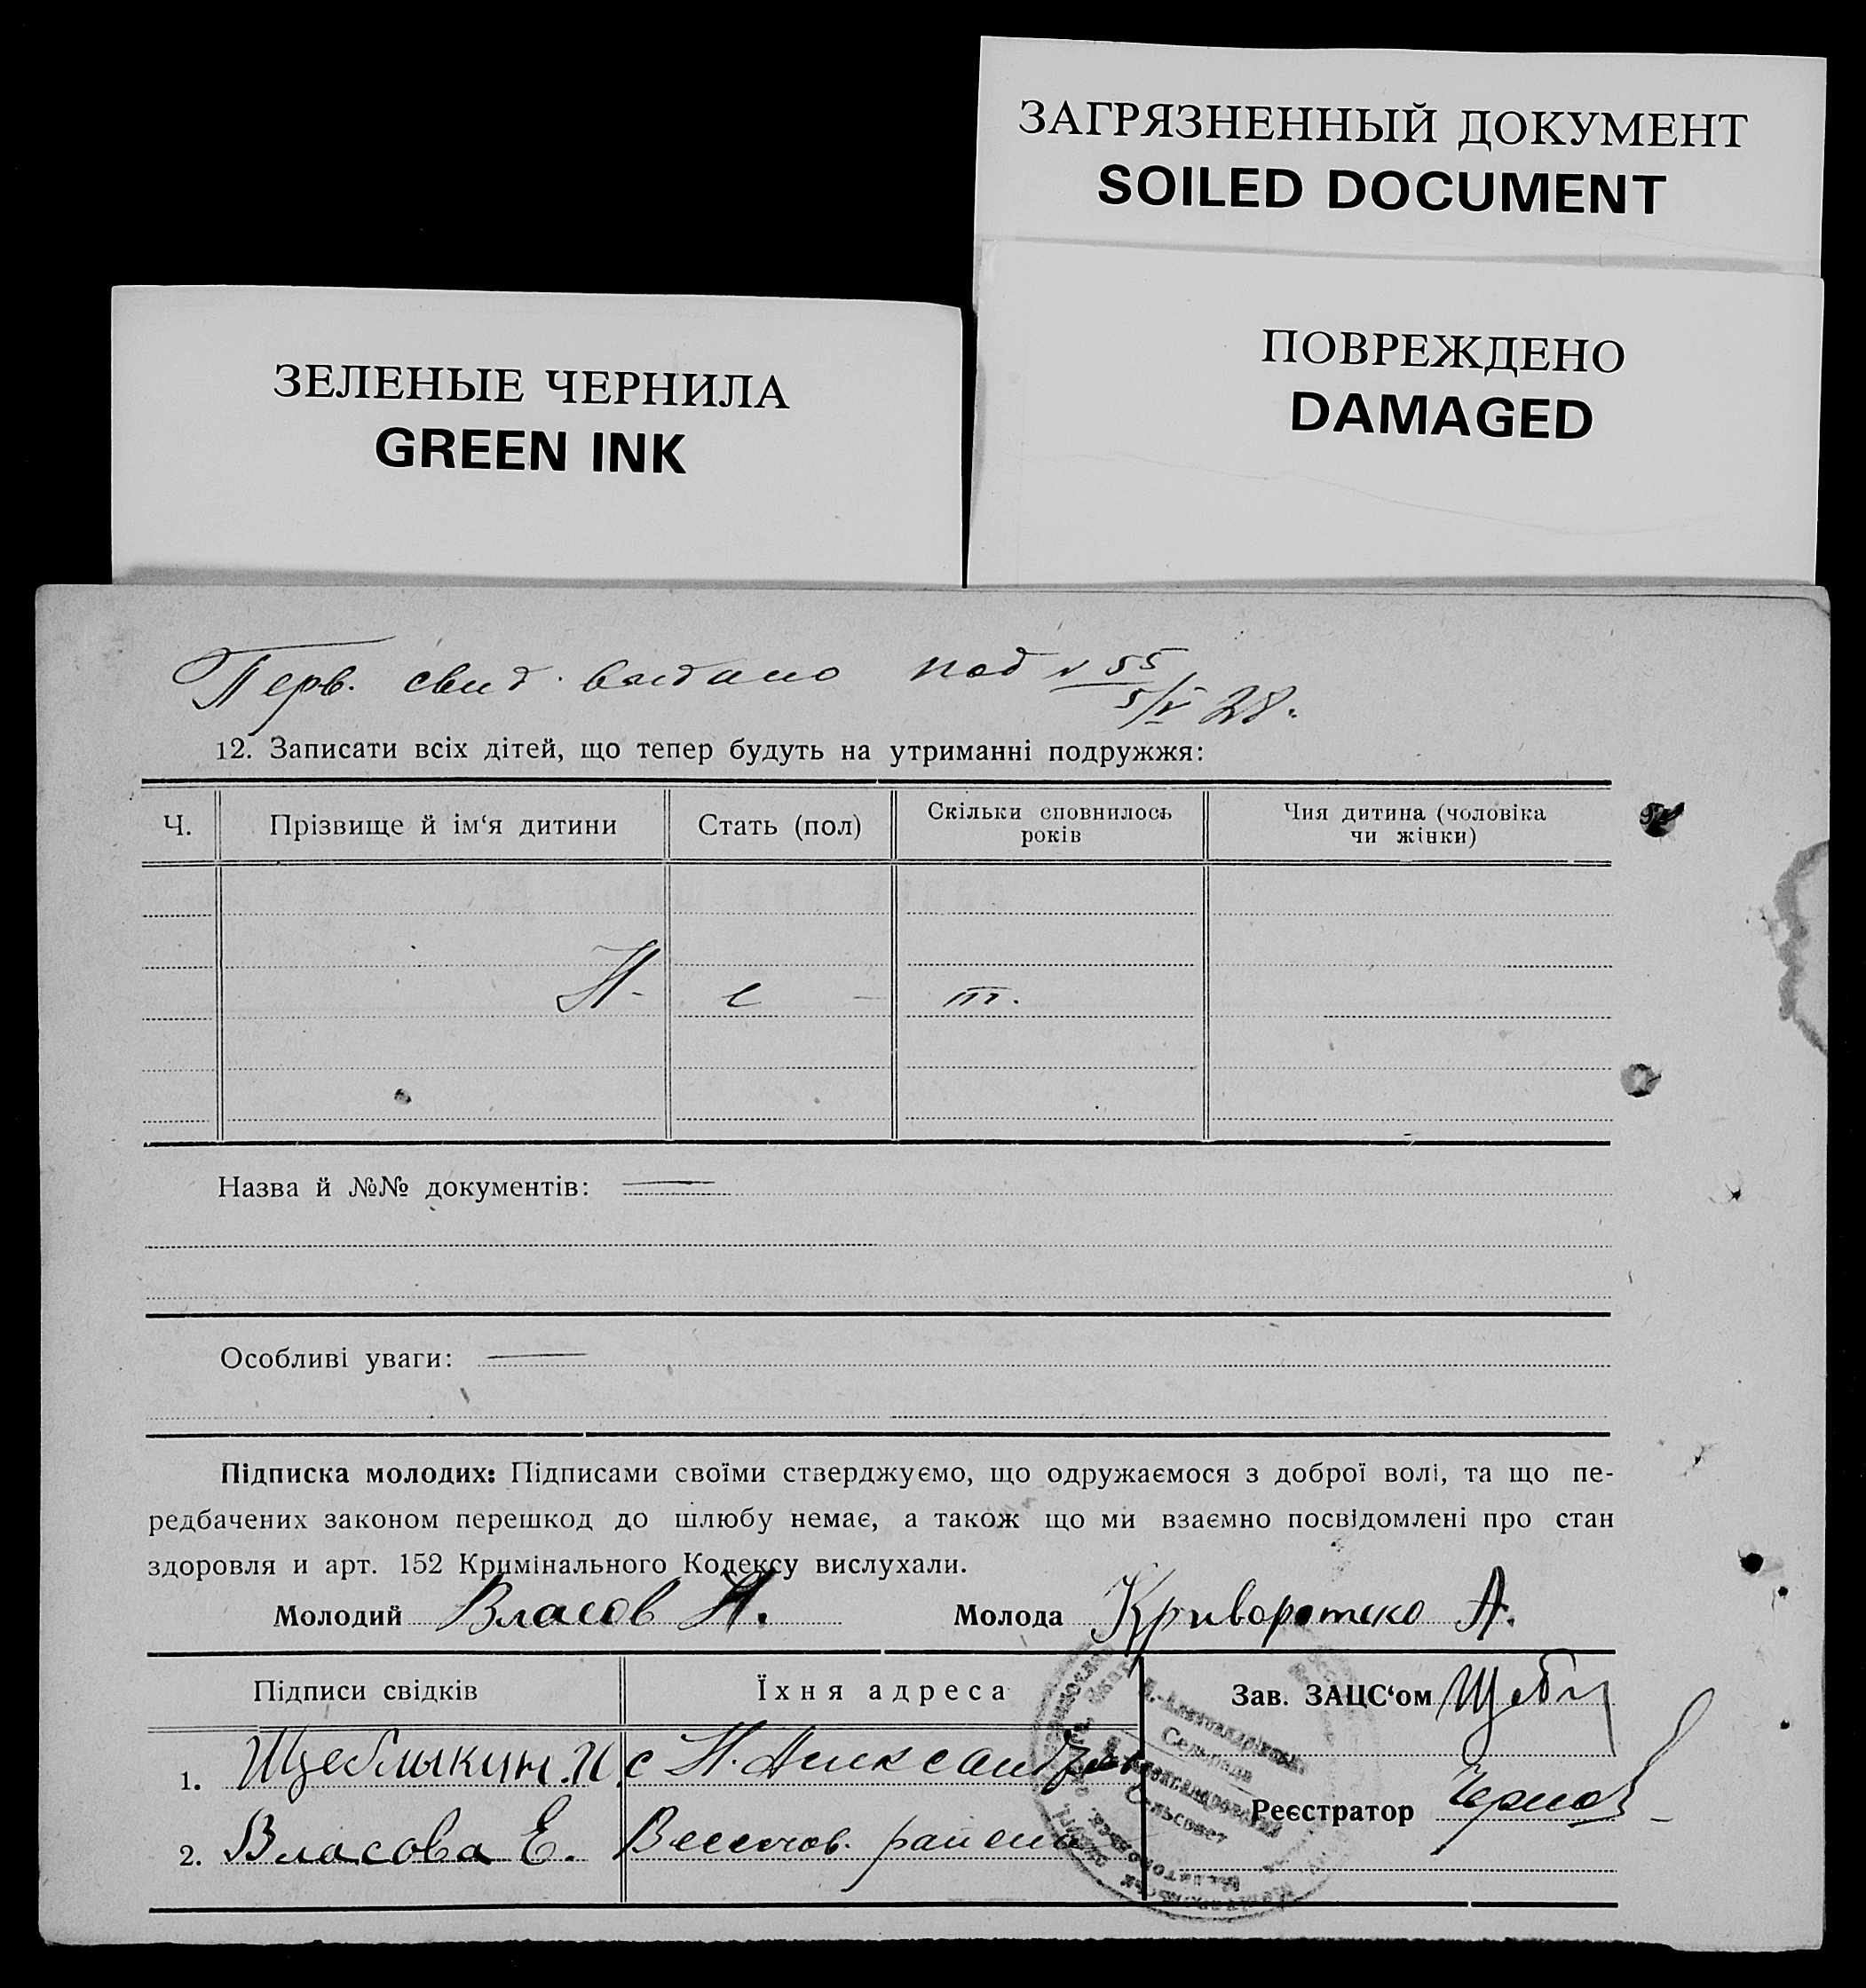 ЗАГРЯЗНЕННЫЙ ДОКУМЕНТ
SOILED DOCUMENT
ПОВРЕЖДЕНО
DAMAGED
ЗЕЛЕНЫЕ ЧЕРНИЛА
GREEN INK
Перв. свид. выдано под № 55
5/V 28.
12. Записати всіх дітей, що тепер будуть на утриманні подружжя:
Ч. Прізвище й ім‘я дитини Стать (пол) Скільки сповнилось років Чия дитина (чоловіка чи жінки)
Н - е - т.
Назва й №№ документів: —
Особливі уваги: —
Підписка молодих: Підписами своїми стверджуємо, що одружаємося з доброї волі, та що пе-
редбачених законом перешкод до шлюбу немає, а також що ми взаємно посвідомлені про стан
здоровля и арт. 152 Кримінального Кодексу вислухали.
Молодий Власов Н. Молода Криворотско А.
Підписи свідків Їхня адреса Зав. ЗАЦС‘ом
1. Щеблыкин. И. с Н.
2. Власова Е. района
Реєстратор
Сельрада
Сельсовет